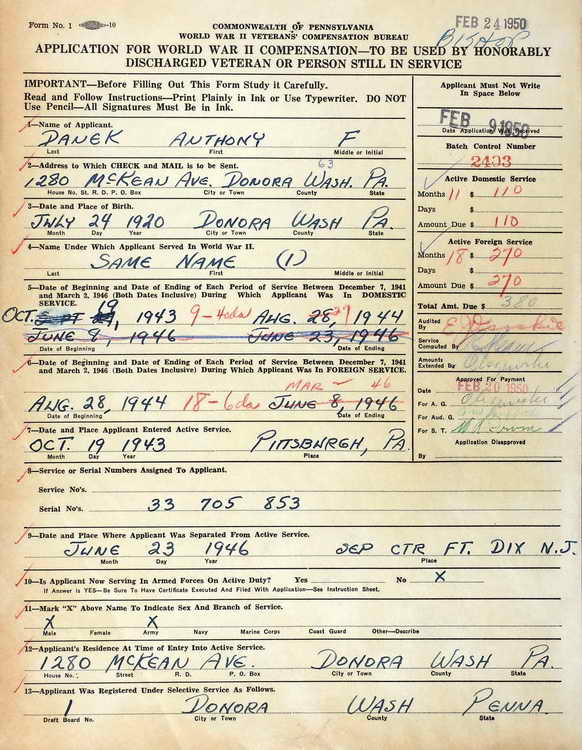 Form No. 1 —10
COMMONWEALTH OF PENNSYLVANIA
WORLD WAR II VETERANS' COMPENSATION BUREAU
FEB 24 1950
BISHOP
APPLICATION FOR WORLD WAR II COMPENSATION—TO BE USED BY HONORABLY
DISCHARGED VETERAN OR PERSON STILL IN SERVICE
IMPORTANT—Before Filling Out This Form Study it Carefully.
Read and Follow Instructions—Print Plainly in Ink or Use Typewriter. DO NOT
Use Pencil—All Signatures Must Be in Ink.
Applicant Must Not Write
In Space Below
FEB 9 1950
Date Application Was Received
Batch Control Number
2403
Active Domestic Service
Months 11 $ 110
Days $
Amount Due $ 110
Active Foreign Service
Months 18 $ 270
Days $
Amount Due $ 270
Total Amt. Due $ 380
Audited
By
Service
Computed By
Amounts
Extended By
Approved For Payment
Date FEB 20 1950
For A. G.
For Aud. G.
For S. T.
Application Disapproved
By
1—Name of Applicant.
DANEK ANTHONY F
Last First Middle or Initial
2—Address to Which CHECK and MAIL is to be Sent. 63
1280 McKEAN AVE. DONORA WASH. PA.
House No. St. R. D. P. O. Box City or Town County State
3—Date and Place of Birth.
JULY 24 1920 DONORA WASH PA.
Month Day Year City or Town County State
4—Name Under Which Applicant Served In World War II.
SAME NAME (1)
Last First Middle or Initial
5—Date of Beginning and Date of Ending of Each Period of Service Between December 7, 1941
and March 2, 1946 (Both Dates Inclusive) During Which Applicant Was In DOMESTIC
SERVICE.
OCT. 19, 1943 9-4da AUG. 28, 27 1944
JUNE 8, 1946 JUNE 23, 1946
Date of Beginning Date of Ending
6—Date of Beginning and Date of Ending of Each Period of Service Between December 7, 1941
and March 2, 1946 (Both Dates Inclusive) During Which Applicant Was In FOREIGN SERVICE.
MAR — 46
AUG. 28, 1944 18-6da JUNE 8, 1946
Date of Beginning Date of Ending
7—Date and Place Applicant Entered Active Service.
OCT. 19 1943 PITTSBURGH, PA.
Month Day Year Place
8—Service or Serial Numbers Assigned To Applicant.
Service No's.
Serial No's. 33 705 853
9—Date and Place Where Applicant Was Separated From Active Service.
JUNE 23 1946 SEP CTR FT. DIX N.J.
Month Day Year Place
10—Is Applicant Now Serving In Armed Forces On Active Duty? Yes No X
If Answer is YES—Be Sure To Have Certificate Executed And Filed With Application—See Instruction Sheet.
11—Mark "X" Above Name To Indicate Sex And Branch of Service.
X X
Male Female Army Navy Marine Corps Coast Guard Other—Describe
12—Applicant's Residence At Time of Entry Into Active Service.
1280 McKEAN AVE. DONORA WASH PA.
House No. Street R. D. P. O. Box City or Town County State
13—Applicant Was Registered Under Selective Service As Follows.
1 DONORA WASH PENNA.
Draft Board No. City or Town County State